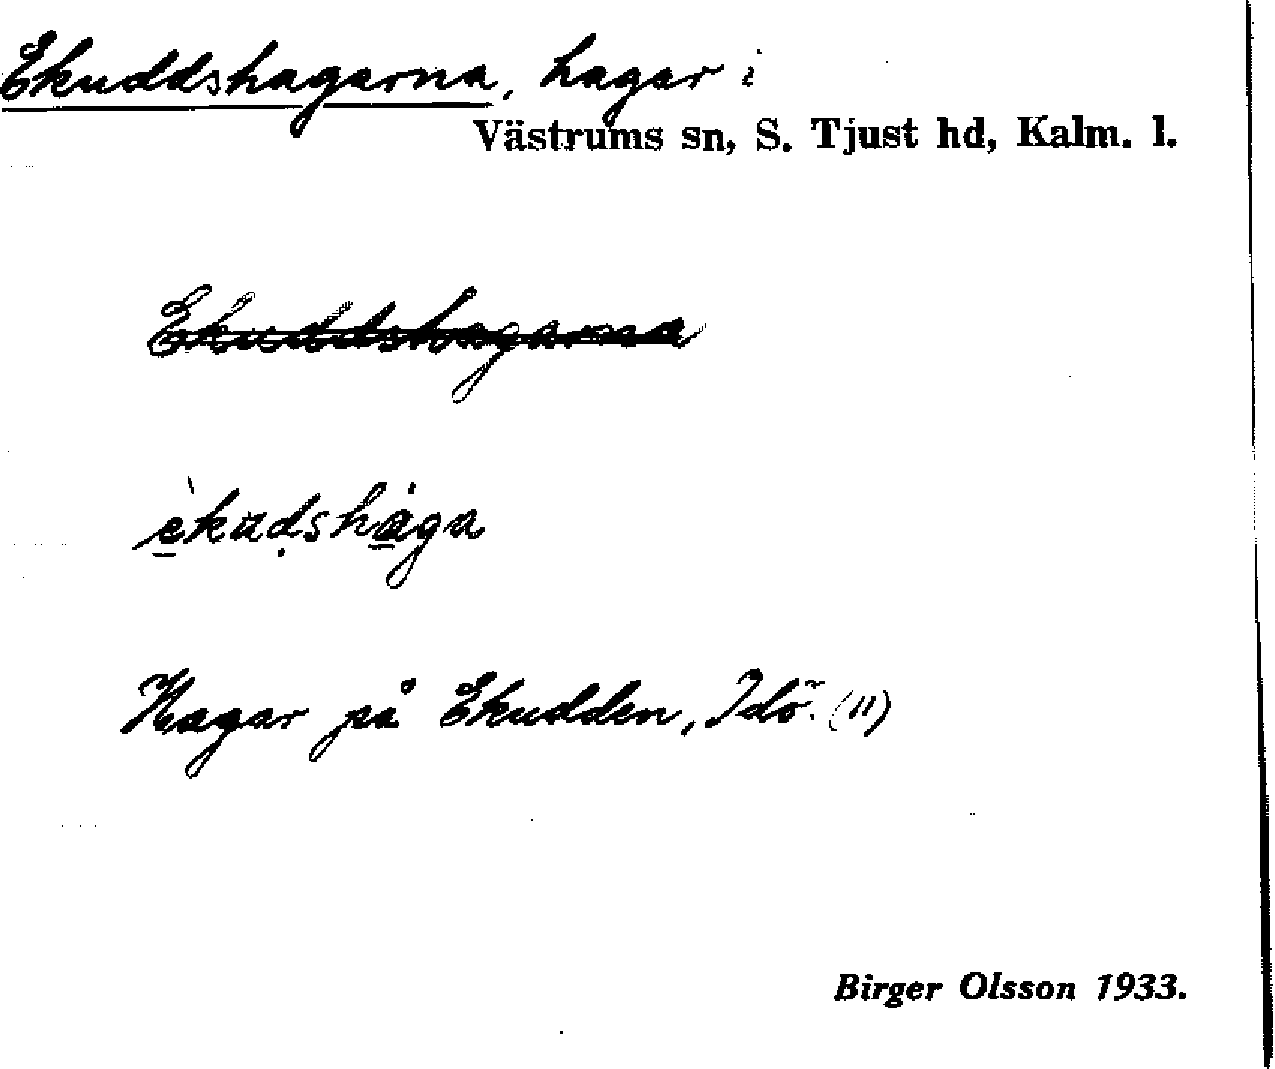 Ekuddshagarna, hagar i
Västrums sn, S. Tjust hd, Kalm. l.
Ekuddshagarna
èkudshàga
Hagar på Ekudden, Idö. (11)
Birger Olsson 1933.